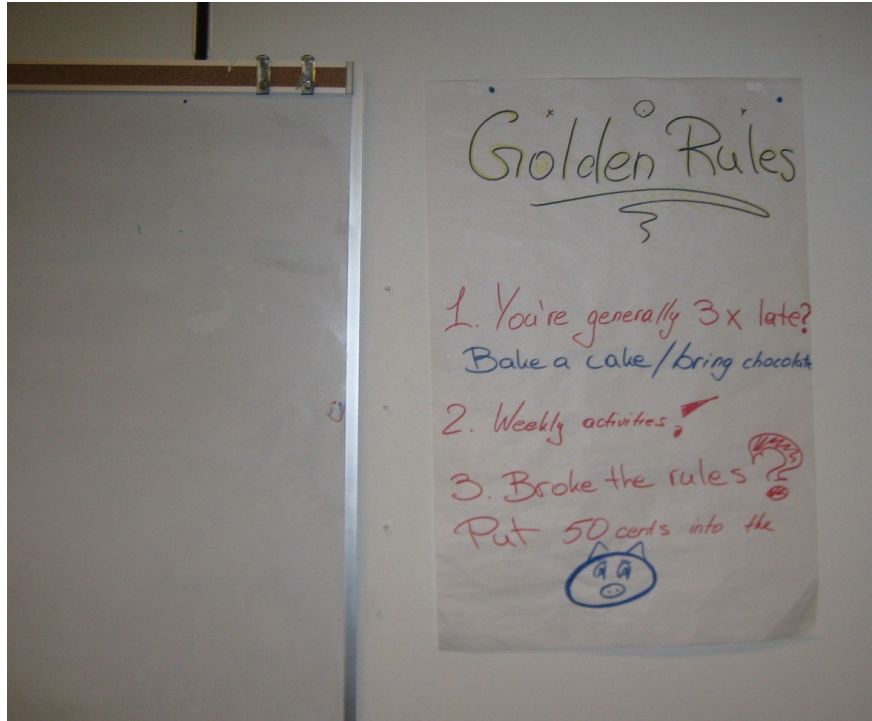 Golden Rules
1. You're generally 3x late?
Bake a cake/bring chocolate
2. Weekly activities!
3. Broke the rules?
Put 50 cents into the